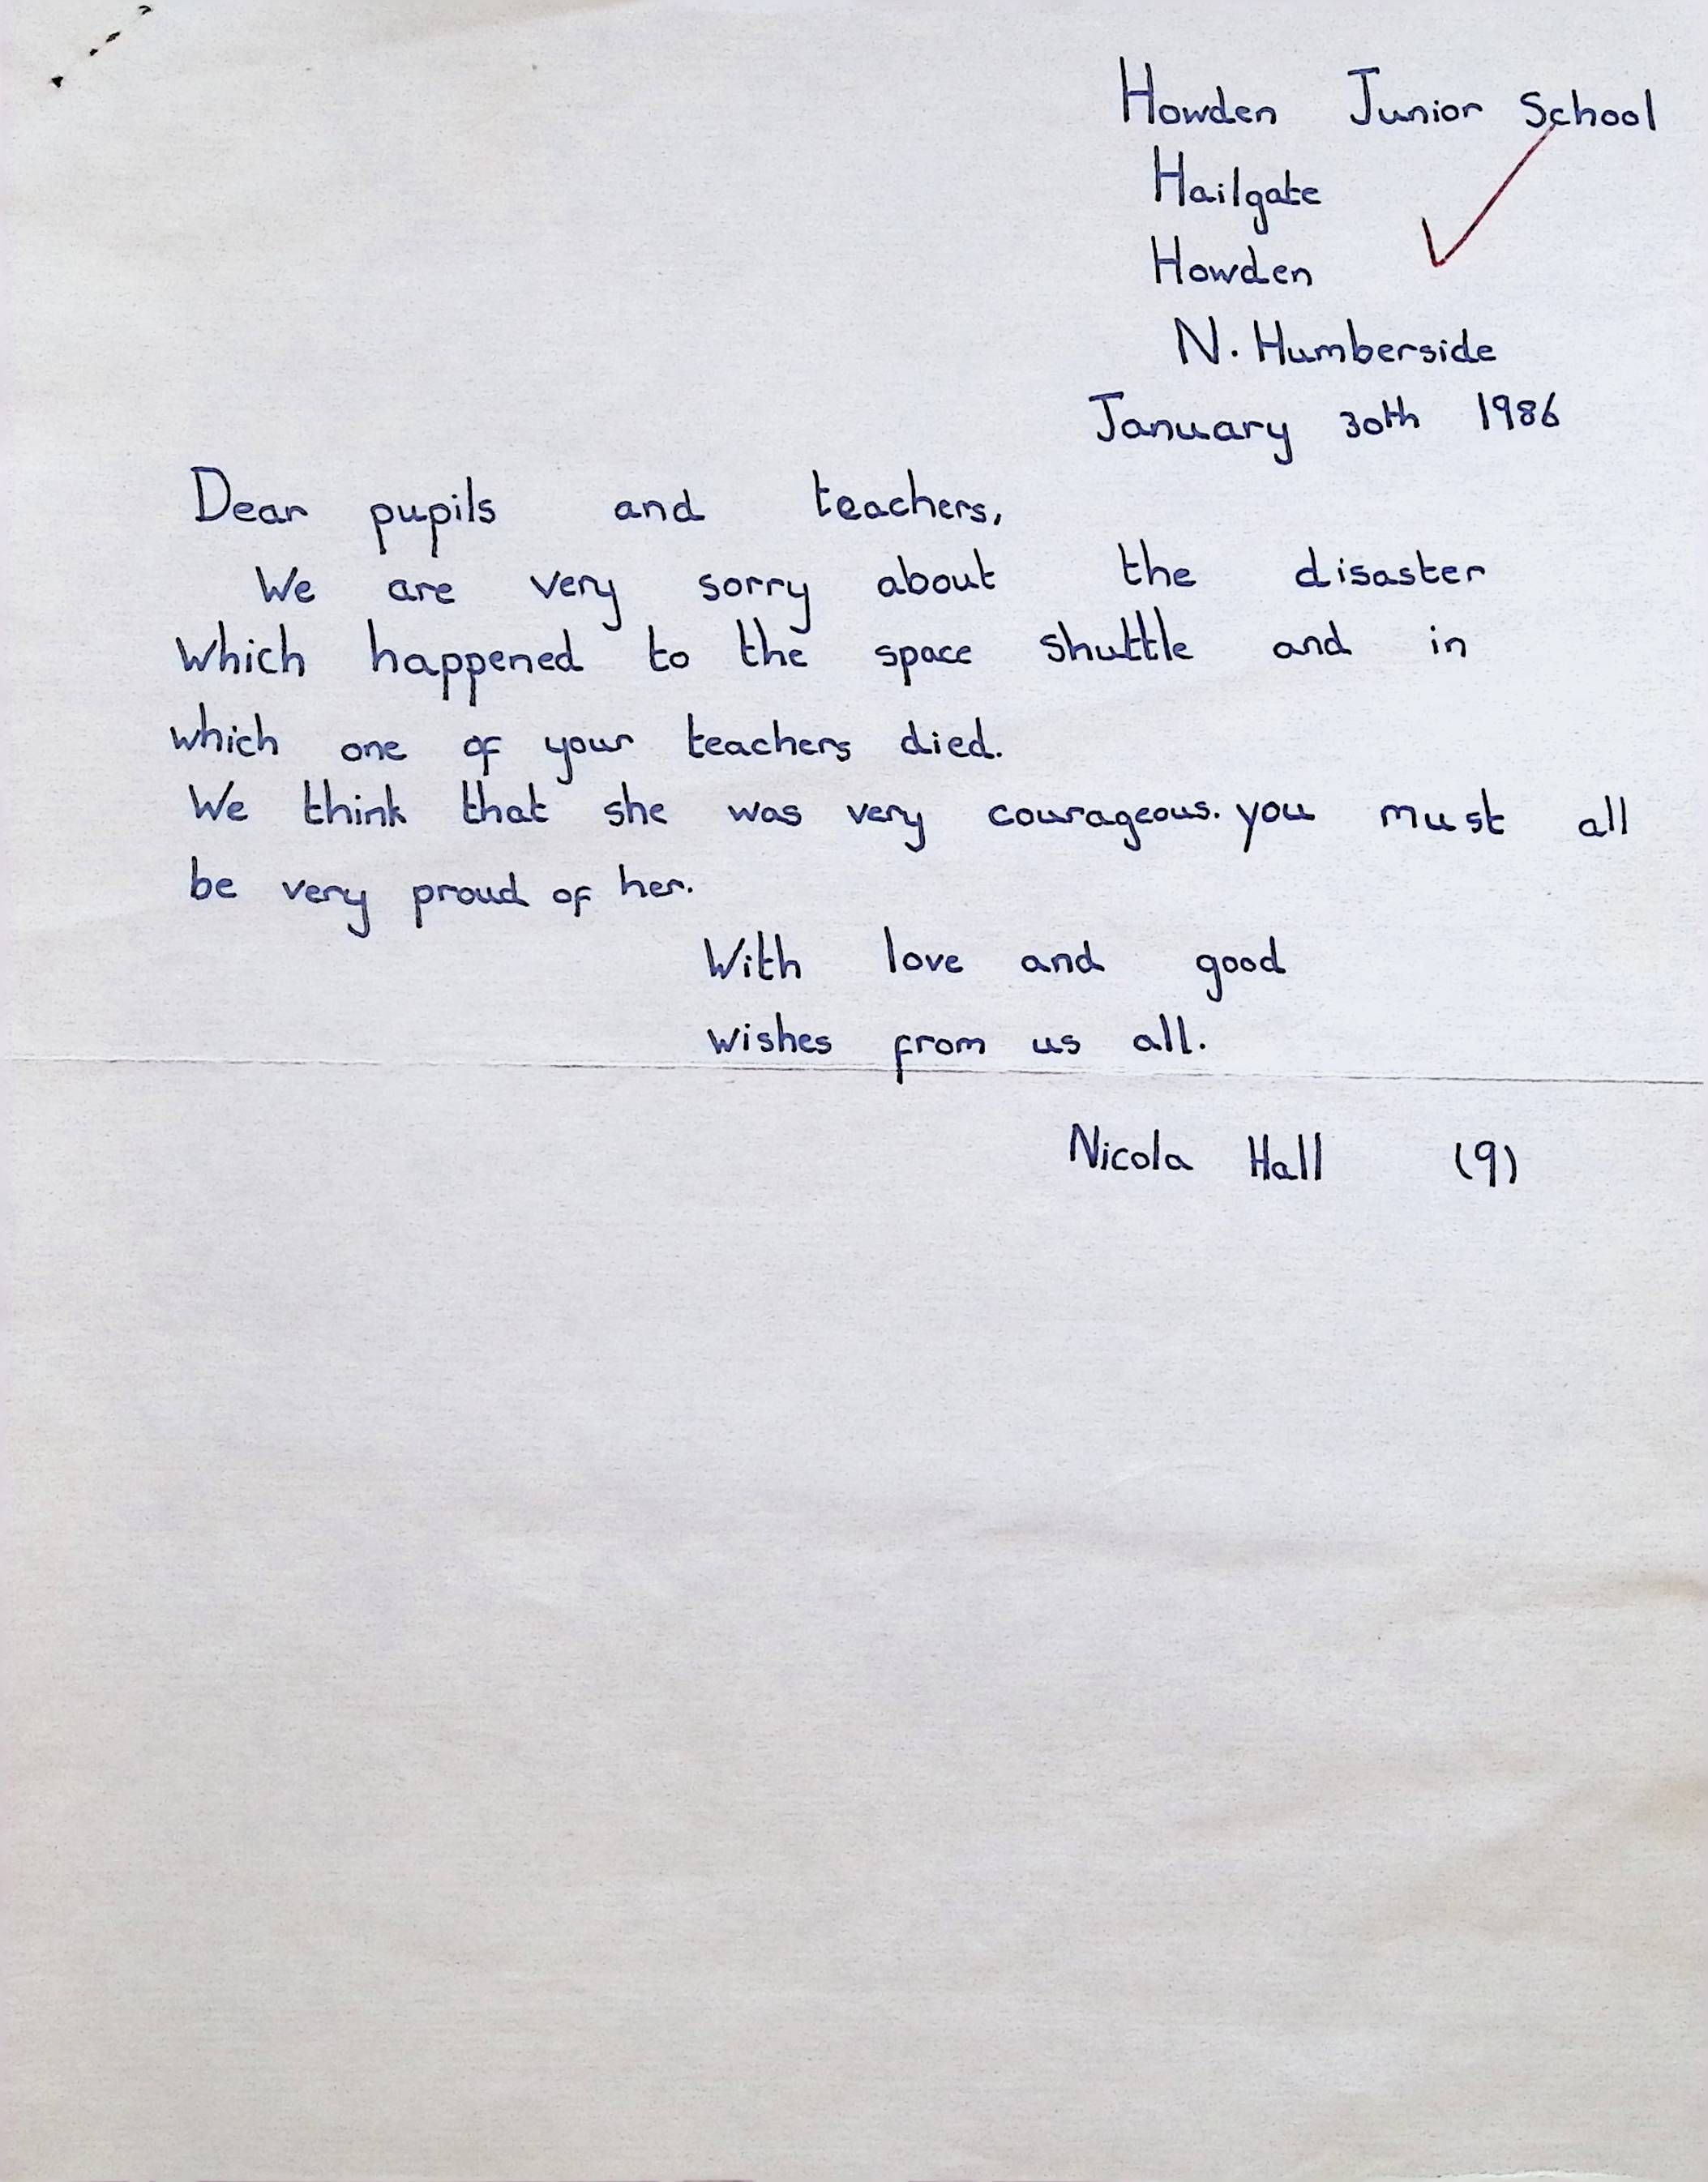 Howden Junior School
Hailgate
Howden
N. Humberside
January 30th 1986
Dear pupils and teachers,
We are very sorry about the disaster
which happened to the space shuttle and in
which one of your teachers died.
We think that she was very courageous. you must all
be very proud of her.
With love and good
wishes from us all.
Nicola Hall (9)